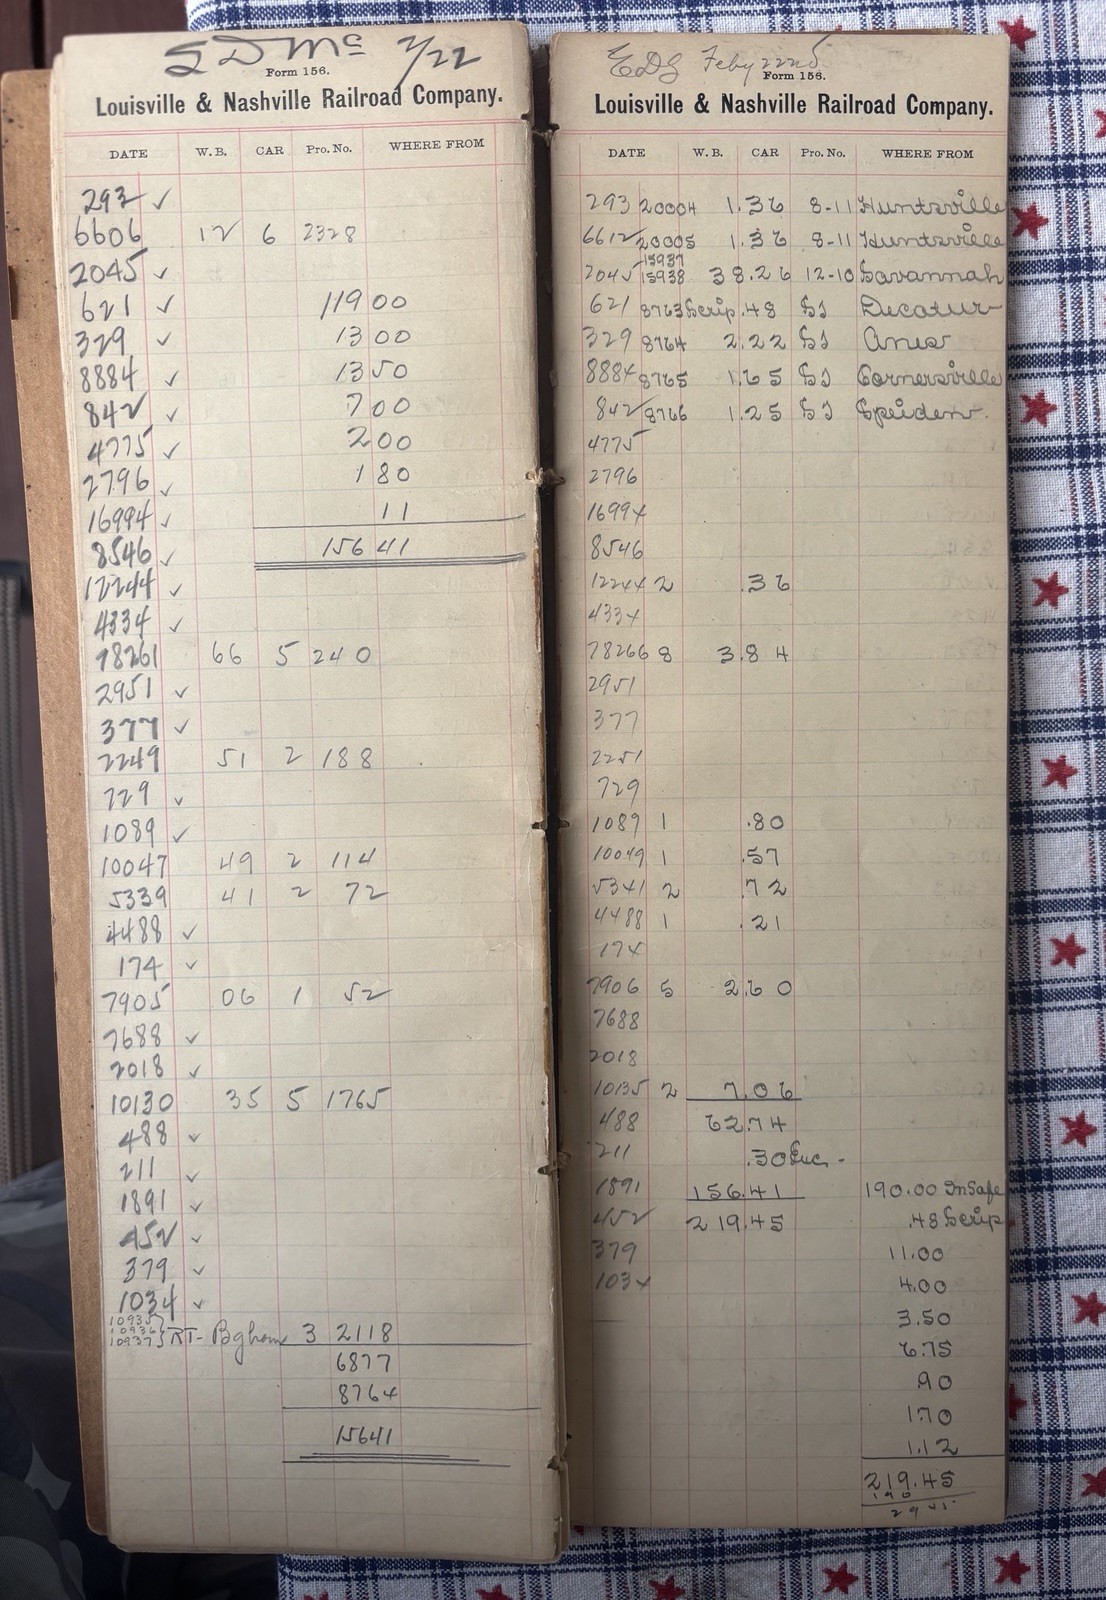 S D Mc 2/22
Form 156.
Louisville & Nashville Railroad Company.
DATE W. B. CAR Pro. No. WHERE FROM
293 ✓
6606 12 6 2328
2045 ✓
621 ✓ 119 00
329 ✓ 13 00
8884 ✓ 13 50
842 ✓ 7 00
4775 ✓ 2 00
2796 ✓ 1 80
16994 ✓ 11
8546 ✓ 156 41
12244 ✓
4334 ✓
78261 66 5 240
2951 ✓
377 ✓
2249 51 2 188
729 ✓
1089 ✓
10047 49 2 114
5339 41 2 72
4488 ✓
174 ✓
7905 06 1 52
7688 ✓
2018 ✓
10130 35 5 1765
488 ✓
211 ✓
1891 ✓
452 ✓
379 ✓
1034 ✓
10935
10936
10937 } RT- Bgham 3 2118
6877
8764
15641
EDG Feby 22nd
Form 156.
Louisville & Nashville Railroad Company.
DATE W. B. CAR Pro. No. WHERE FROM
293 20004 1.36 8-11 Huntsville
6612 20005 1.36 8-11 Huntsville
15937
2045 15938 38.26 12-10 Savannah
621 8763 Scrip .48 SJ Decatur
329 8764 2.22 SJ
8884 8765 1.65 SJ Cornersville
842 8766 1.25 SJ Speiden.
4775
2796
16994
8546
12244 2 .36
4334
78266 8 3.84
2951
377
2251
729
1089 1 .80
10049 1 .57
5341 2 .72
4488 1 .21
174
7906 5 2.60
7688
2018
10135 2 7.06
488 62.74
211 .30
1891 156.41 190.00 In Safe
452 219.45 .48 Scrip
379 11.00
1034 4.00
3.50
6.75
90
1.70
1.12
219.45
190
29 45